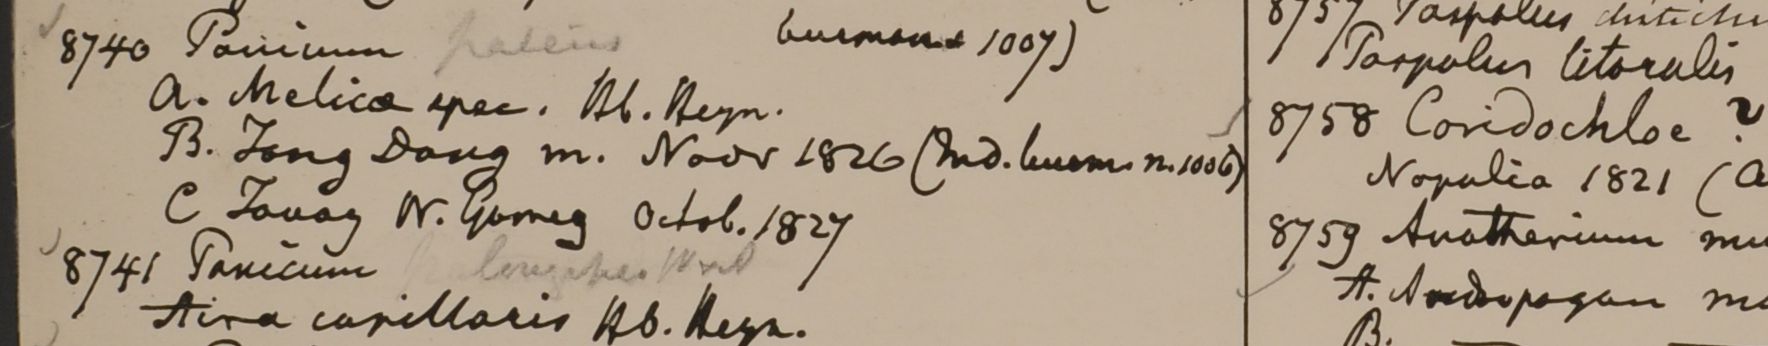 8740 Panicum patens burman. 1007)
a. Melica spec. Hb. Heyn.
B. Tong Dong m. Novr 1826 (Ind. burm. n. 1006)
C Tavoy W. Gomez Octob. 1827
8741 Panicum
Aira capillaris Hb. Heyn.
8757 Paspalus
Paspalus litoralis
8758 Coridochloe ?
Nopalia 1821 (
8759 Anatherium
A. Andropogon
B.